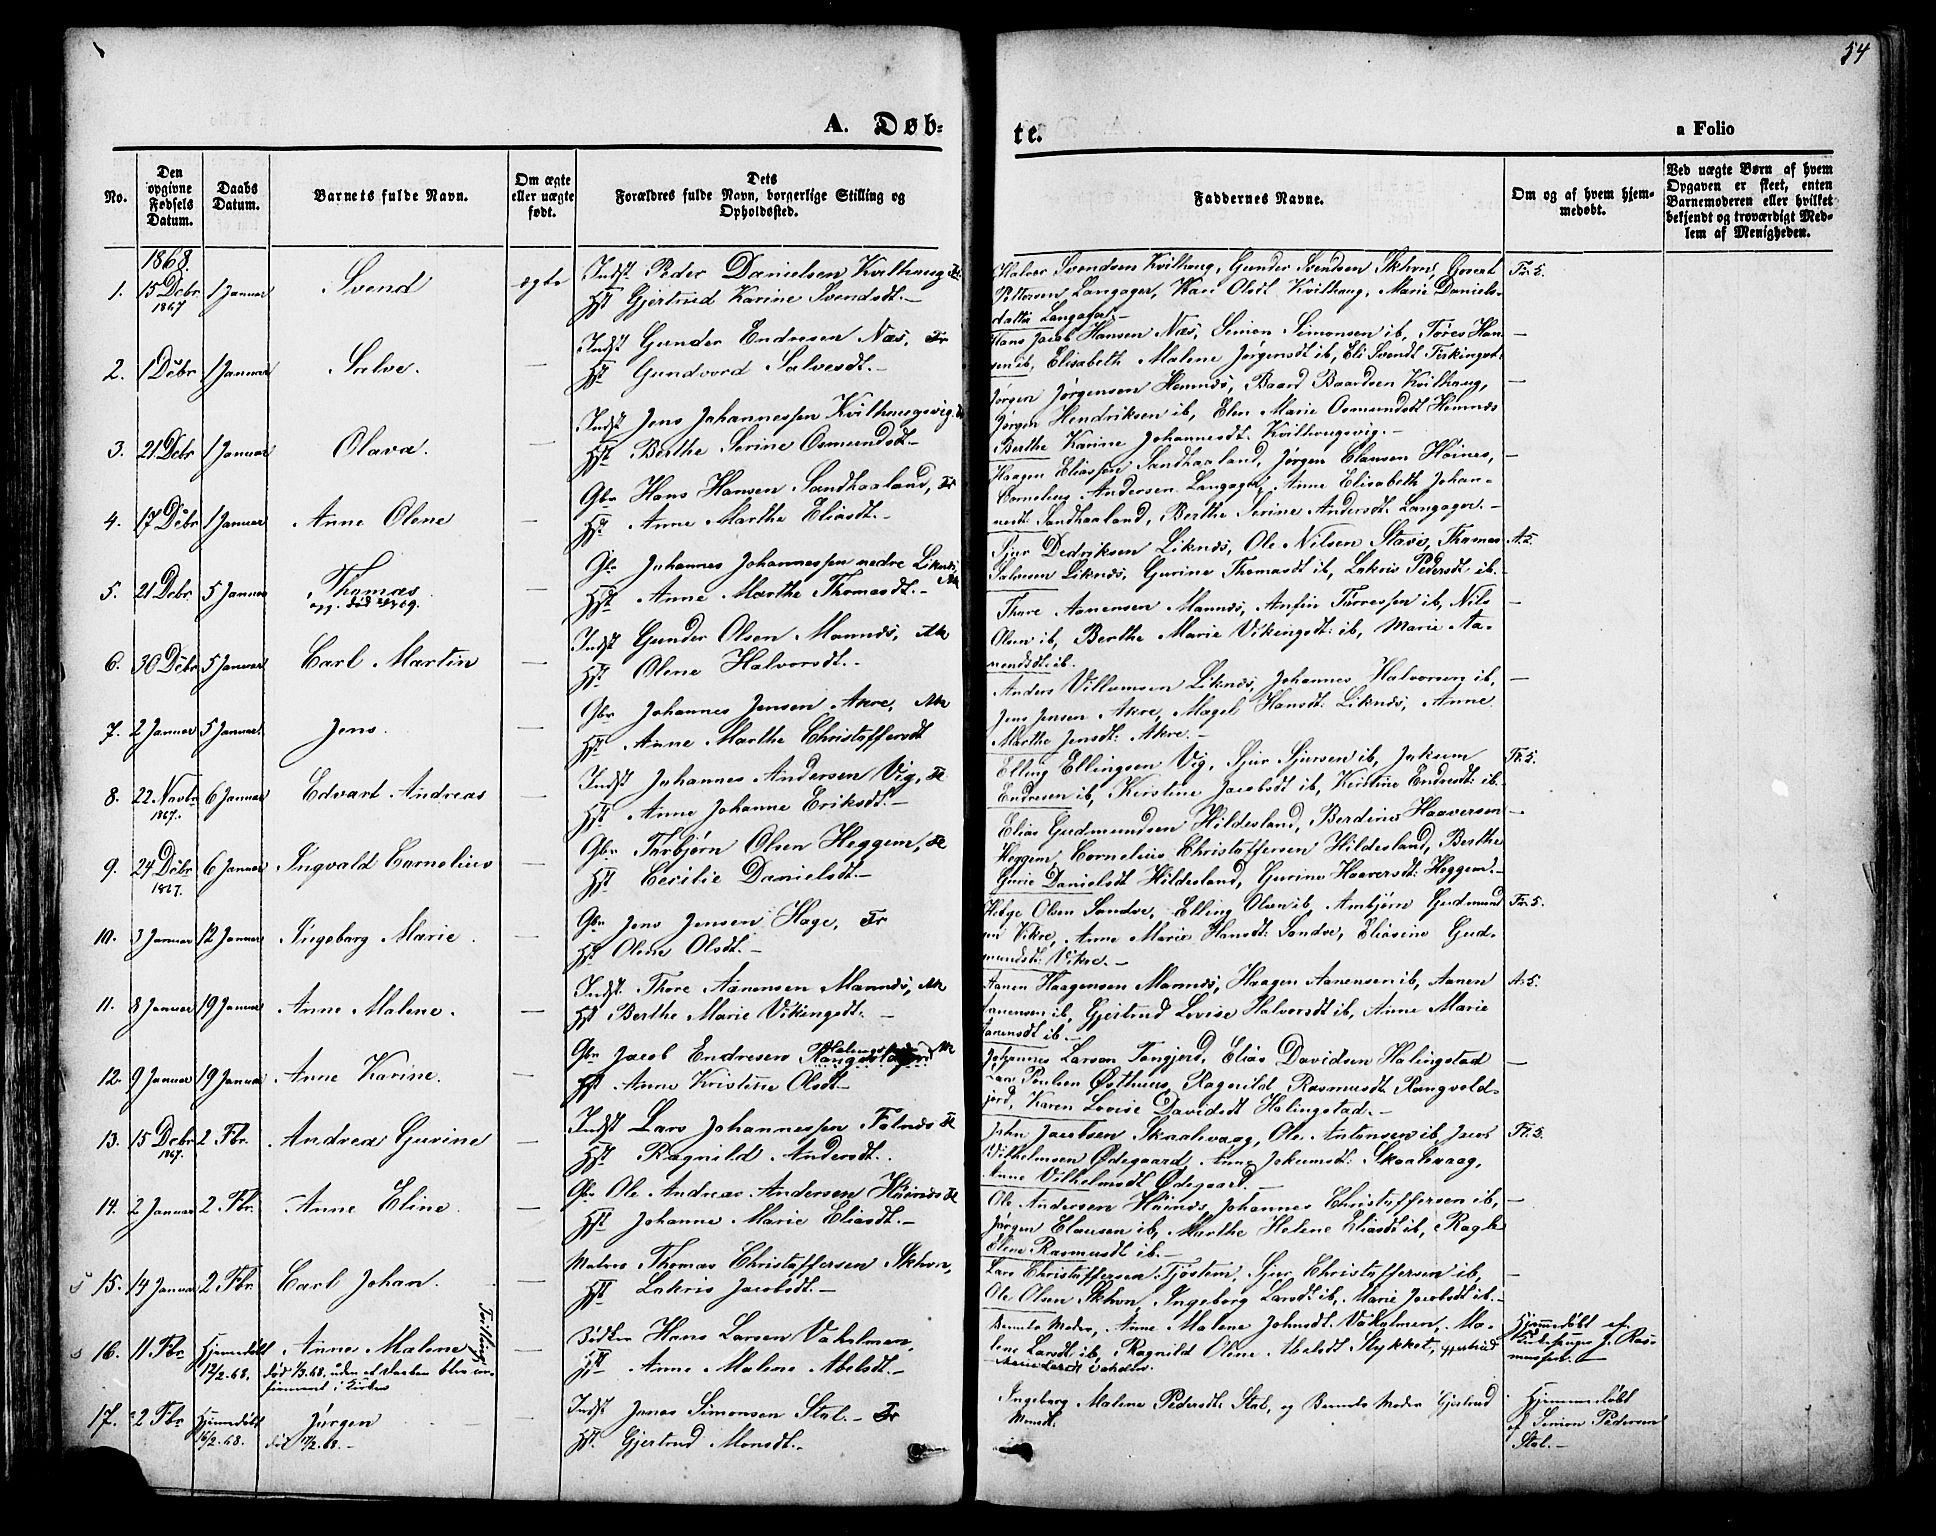 54
A. Døb-
te.
a Folio
No.
Den opgivne Fødsels Datum.
Daabs Datum.
Barnets fulde Navn.
Om ægte eller uægte født.
Dets Forældres fulde Navn, borgerlige Stilling og Opholdssted.
Faddernes Navne.
Om og af hvem hjemmedøbt.
Ved uægte Børn af hvem Opgaven er skeet, enten Barnemoderen eller hvilket bekjendt og troværdigt Medlem af Menigheden.
1868.
1. 15 Debr 1867 1 Januar Svend ægte
Indst Peder Danielsen Kvilhaug
Hst Gjertrud Karine Svendsdt.-
Halvor Svendsen Kvilhaug, Gunder Svendsen
Pettersen Langager, Kari Olsdt Kvilhaug, Marie Daniels-
datter Langager.-
Fr. 5.
2. 1 Debr 1 Januar Salve. —
Indst Gunder Endresen Næs, Fr
Hst Gundvord Salvesdt.-
Hans Jacob Hansen Næs, Simon Simonsen ib, Tøres Han-
sen ib, Elisabeth Malene Jørgensdt ib, Eli Svendt
—
3. 21 Debr 1 Januar Olava. —
Indst Jens Johannessen Kvilhaugsvig
Hst Berthe Serine Osmundsdt-
Jørgen Jørgensen Hemnæs, Baard Baardsen Kvilhaug,
Jørgen Hendriksen ib, Elen Marie Osmundsdt Hemnæs
Berthe Karine Johannesdt. Kvilhaugsvig.-
—
4. 17 Debr 1 Januar Anne Olene —
Gbr Hans Hansen Sandhaaland, Fr
Hst Anne Marthe Eliasdt.-
Haagen Eliassen Sandhaaland, Jørgen Clausen Høines,
Cornelius Andersen Langager, Anne Elisabeth Johan-
nesdt Sandhaaland, Berthe Serine Andersdt. Langager.-
5. 21 Debr. 5 Januar Thomas —
opg. død
Gbr Johannes Johannessen nedre Liknæs, Ak
Hst Anne Marthe Thomasdt.-
Sjur Dedriksen Liknæs, Ole Nilsen Stave, Thomas
Salvesen Liknæs, Gurine Thomasdt ib, Lakris Pedersdt ib.-
A. 5.
6. 30 Debr 5 Januar Carl Martin —
Indst Gunder Olsen Mannæs, Ak
Hst Olene Halvorsdt.-
Thore Aanensen Mannæs, Anfin Tørressen ib, Nils
Olsen ib, Berthe Marie Vikingsdt. ib, Marie Aa-
nensdt. ib.
—
7. 2 Januar 5 Januar. Jens. —
Gbr Johannes Jensen Akre, Ak
Hst Anne Marthe Christoffersdt
Anders Villumsen Liknæs, Johannes Halvorsen ib,
Jens Jensen Akre, Magel Hansdt. Liknæs, Anne
Marthe Jensdt. Akre.-
—
8. 22 Novbr 1867. 6 Januar Edvart Andreas —
Indst Johannes Andersen Vig,
Hst Anne Johanne Eriksdt.-
Elling Ellingsen Vig, Sjur Sjursen ib, Jakson
Endresen ib, Kirstine Jacobsdt ib, Kirstine Endresdt. ib.
Fr. 5.
9. 24 Debr 1867. 6 Januar Ingvald Cornelius —
Gbr Thorbjørn Olsen Heggem,
Hst Cecilie Danielsdt-
Elias Gudmundsen Hildesland, Berdines Haaversen
Heggem Cornelius Christoffersen Hildesland, Berthe
Gurie Danielsdt Hildesland, Gurine Haaversdt. Heggem.-
—
10. 3 Januar 12 Januar Ingeborg Marie. —
Gbr Jens Jensen Hage, Fr
Hst Olene Olsdt.-
Helge Olsen Sandve, Elling Olsen ib. Ambjørn Gudmund
sen Vikre, Anne Marie Hansdt. Sandve, Eliasine Gud-
mundsdt. Vikre.-
Fr. 5.
11. 8 Januar 19 Januar Anne Malene. —
Indst Thore Aanensen Mannæs, Ak
Hst Berthe Marie Vikingsdt. -
Aanen Haagensen Mannæs, Haagen Aanensen ib, Aanen
Aanensen ib, Gjertrud Lovise Halvorsdt ib, Anne Marie
Aanensdt ib.-
A. 5.
12. 9 Januar 19 Januar Anne Karine. —
Gbr Jacob Endresen Ak
Hst Anne Kristine Olsdt-
Johannes Larsen Tangjerd, Elias Davidsen Halingstad
Lars Poulsen Østhuus, Ragnild Rasmusdt. Rangvold-
jord, Karen Lovise Davidsdt Halingstad.-
—
13. 15 Debr 1867. 2 Fbr. Andrea Gurine —
Indst Lars Johannessen Falnæs
Hst Ragnild Andersdt.
John Jacobsen Skaalevaag, Ole Antonsen ib Jacob
Vilhelmsen Ødegaard, Anne Jokumsdt. Skaalevaag,
Anne Vilhelmsdt Ødegaard.-
Fr. 5.
14. 2 Januar 2 Fbr. Anne Eline. —
Gbr Ole Andreas Andersen Høinæs
Hst Johanne Marie Eliasdt.-
Ole Andersen Høinæs, Johannes Christoffersen ib,
Jørgen Clausen ib, Marthe Helene Eliasdt ib,
Elene Rasmusdt ib.-
—
15. 14 Januar 2 Fbr. Carl Johan. —
Thomas Christoffersen Skhvn,
Hst Lakris Jacobsdt.-
Lars Christoffersen Tjøstem, Sjur Christoffersen ib,
Ole Olsen Skhvn, Ingeborg Larsdt ib, Marie Jacobsdt ib.-
—
16. 11 Fbr Hjemmedøbt 12/2-68. Anne Malene Tvilling —
død 1/3 68. uden at Daaben blev con-
firmeret i Kirken
Bødker Hans Larsen Vaholmen,
Hst Anne Malene Abelsdt.-
Barnets Moder, Anne Malene Johnsdt. Vaholmen, Ma-
lene Larsdt ib, Ragnild Olene Abelsdt Stykket, Gjertrud
Marie Larsdt Vaholm.
Hjemmedøbt af
J. Ras-
mussen.-
17. 2 Fbr Hjemmedøbt 16/2-68. Jørgen
død 17/2 68.-
Indst Jonas Simonsen Stol.- Fr
Hst. Gjertrud Monsdt.-
Ingeborg Malene Pedersdt Stol, og Barnets Moder Gjertrud
Monsdt.
Hjemmedøbt
af Simon Pedersen
Stol.-